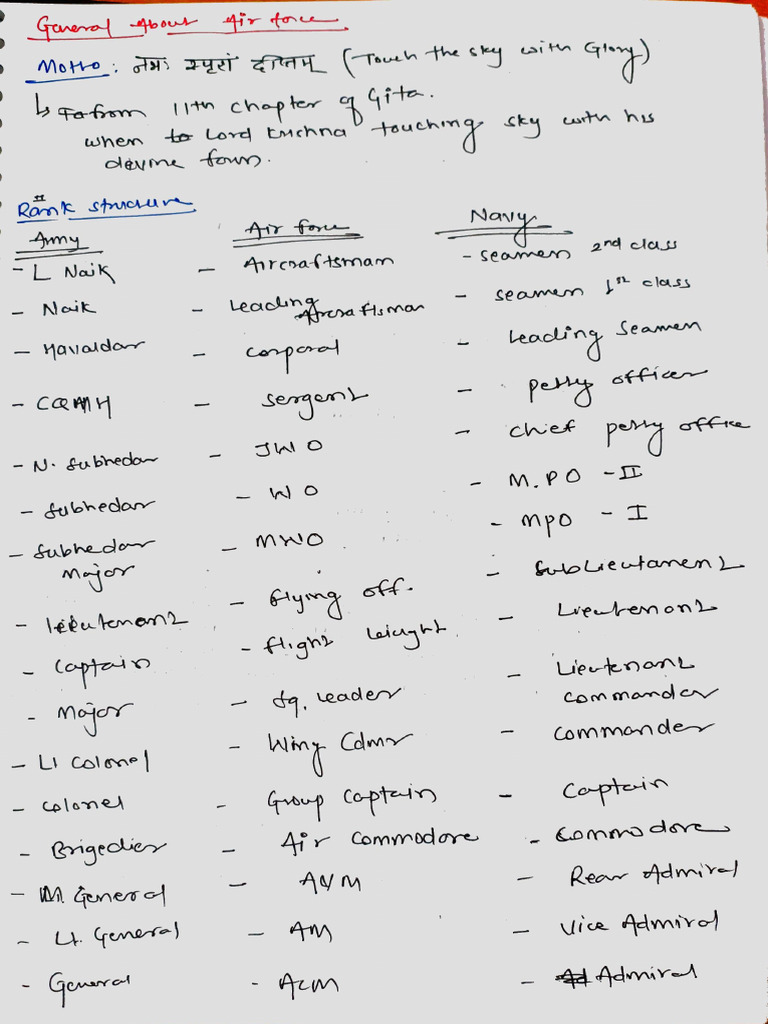 General About Air force
Motto : नभः स्पृशं दीप्तम् (Touch the sky with Glory)
↳ from 11th chapter of Gita.
when Lord Krichna touching sky with his
devine form.
Rank structure
Army Air force Navy
- L Naik - Aircraftsman - seamen 2nd class
- Naik - Leading Aircraftsman - seamen 1st class
- Havaldar - corporal - Leading Seamen
- CQMH - sergent - petty officer
- N. Subhedar - JWO - chief petty office
- Subhedar - WO - M.PO - II
- Subhedar Major - MWO - MPO - I
- lieutenant - flying off. - SubLieutanent
- Captain - flight - Lieutenant
- Major - Sq. Leader - Lieutenant commander
- Lt Colonel - Wing Cdmr - commander
- Colonel - Group Captain - Captain
- Brigedier - Air Commodore - Commodore
- M. General - AVM - Rear Admiral
- Lt. General - AM - Vice Admiral
- General - ACM - Admiral